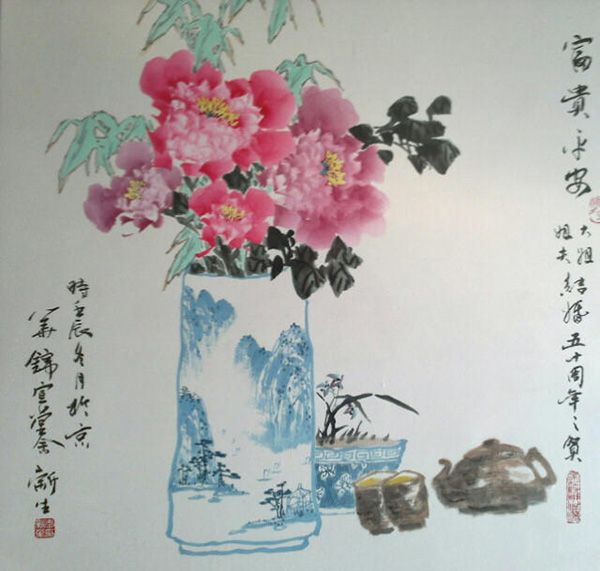 富貴平安
大姐
姐夫結婚五十周年之賀
時壬辰冬月於京
華錦宣堂余新生